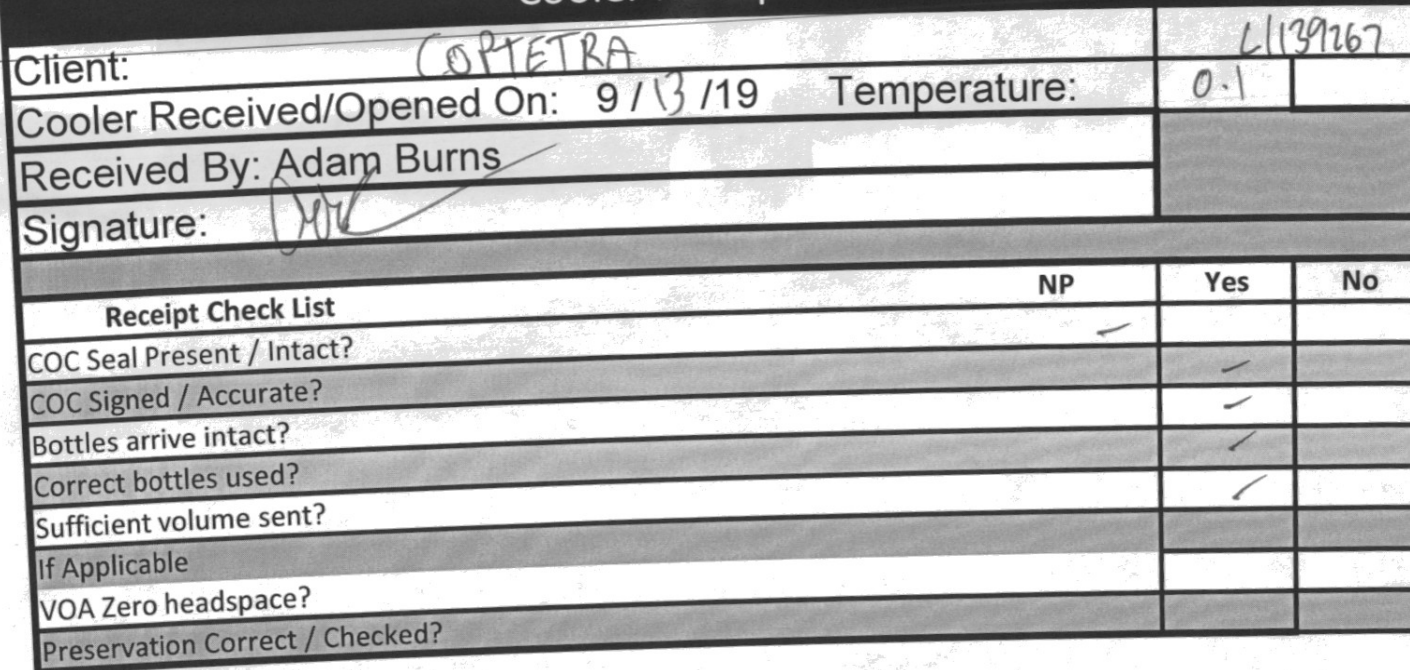 Client: COPTETRA L1139267
Cooler Received/Opened On: 9/13/19 Temperature: 0.1
Received By: Adam Burns
Signature:
Receipt Check List NP Yes No
COC Seal Present / Intact? ✓
COC Signed / Accurate? ✓
Bottles arrive intact? ✓
Correct bottles used? ✓
Sufficient volume sent? ✓
If Applicable
VOA Zero headspace?
Preservation Correct / Checked?